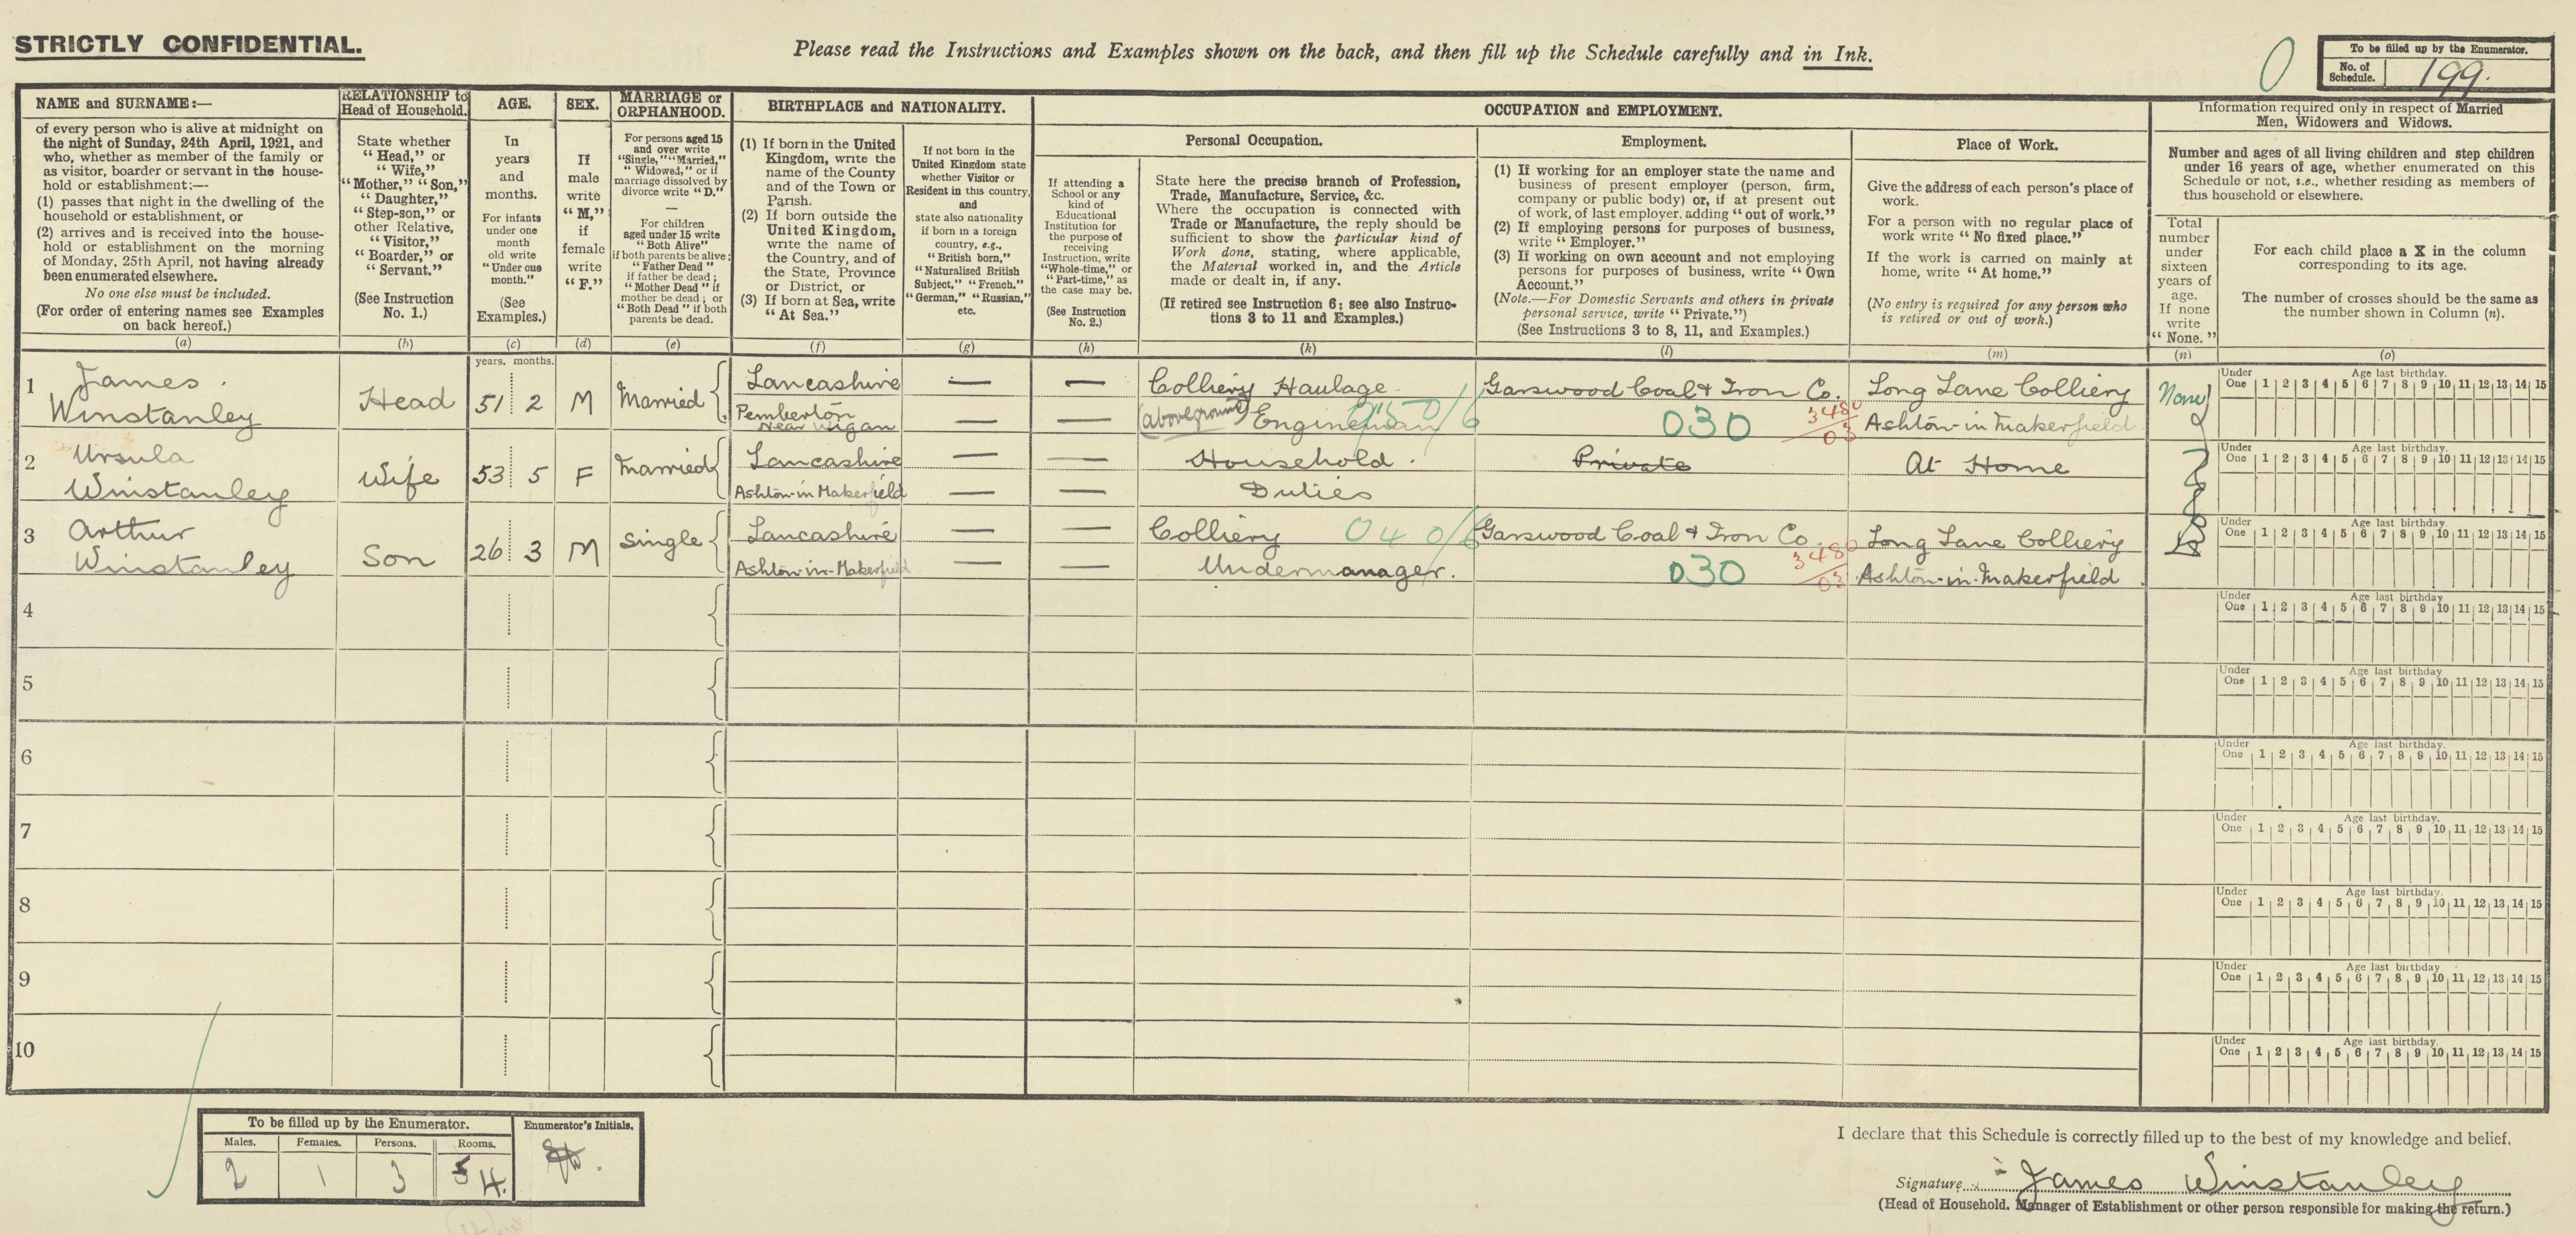 STRICTLY CONFIDENTIAL.
Please read the Instructions and Examples shown on the back, and then fill up the Schedule carefully and in Ink.
0
To be filled up by the Enumerator.
No. of Schedule. 199.
NAME and SURNAME:—
of every person who is alive at midnight on
the night of Sunday, 24th April, 1921, and
who, whether as member of the family or
as visitor, boarder or servant in the house-
hold or establishment:—
(1) passes that night in the dwelling of the
household or establishment, or
(2) arrives and is received into the house-
hold or establishment on the morning
of Monday, 25th April, not having already
been enumerated elsewhere.
No one else must be included.
(For order of entering names see Examples
on back hereof.)
(a)
RELATIONSHIP to
Head of Household.
State whether
“Head,” or
“Wife,”
“Mother,” “Son,”
“Daughter,”
“Step-son,” or
other Relative,
“Visitor,”
“Boarder,” or
“Servant.”
(See Instruction
No. 1.)
(b)
AGE.
In
years
and
months.
For infants
under one
month
old write
“Under one
month.”
(See
Examples.)
(c)
SEX.
If
male
write
“M,”
if
female
write
“F.”
(d)
MARRIAGE or
ORPHANHOOD.
For persons aged 15
and over write
“Single,” “Married,”
“Widowed,” or if
marriage dissolved by
divorce write “D.”
—
For children
aged under 15 write
“Both Alive”
if both parents be alive;
“Father Dead”
if father be dead;
“Mother Dead” if
mother be dead; or
“Both Dead” if both
parents be dead.
(e)
BIRTHPLACE and NATIONALITY.
(1) If born in the United
Kingdom, write the
name of the County
and of the Town or
Parish.
(2) If born outside the
United Kingdom,
write the name of
the Country, and of
the State, Province
or District, or
(3) If born at Sea, write
“At Sea.”
(f)
If not born in the
United Kingdom state
whether Visitor or
Resident in this country,
and
state also nationality
if born in a foreign
country, e.g.,
“British born,”
“Naturalised British
Subject,” “French,”
“German,” “Russian,”
etc.
(g)
OCCUPATION and EMPLOYMENT.
Personal Occupation.
If attending a
School or any
kind of
Educational
Institution for
the purpose of
receiving
Instruction, write
“Whole-time,” or
“Part-time,” as
the case may be.
(See Instruction
No. 2.)
(h)
State here the precise branch of Profession,
Trade, Manufacture, Service, &c.
Where the occupation is connected with
Trade or Manufacture, the reply should be
sufficient to show the particular kind of
Work done, stating, where applicable,
the Material worked in, and the Article
made or dealt in, if any.
(If retired see Instruction 6; see also Instruc-
tions 3 to 11 and Examples.)
(k)
Employment.
(1) If working for an employer state the name and
business of present employer (person, firm,
company or public body) or, if at present out
of work, of last employer, adding “out of work.”
(2) If employing persons for purposes of business,
write “Employer.”
(3) If working on own account and not employing
persons for purposes of business, write “Own
Account.”
(Note.—For Domestic Servants and others in private
personal service, write “Private.”)
(See Instructions 3 to 8, 11, and Examples.)
(l)
Place of Work.
Give the address of each person's place of
work.
For a person with no regular place of
work write “No fixed place.”
If the work is carried on mainly at
home, write “At home.”
(No entry is required for any person who
is retired or out of work.)
(m)
Information required only in respect of Married
Men, Widowers and Widows.
Number and ages of all living children and step children
under 16 years of age, whether enumerated on this
Schedule or not, i.e., whether residing as members of
this household or elsewhere.
Total
number
under
sixteen
years of
age.
If none
write
“None.”
(n)
For each child place a X in the column
corresponding to its age.
The number of crosses should be the same as
the number shown in Column (n).
(o)
years. months.
1 James Winstanley Head 51 2 M Married Lancashire — — Colliery Haulage Garswood Coal & Iron Co. Long Lane Colliery None
Pemberton near Wigan — — (aboveground) Engineman 030 3480/03 Ashton-in-Makerfield
2 Ursula Winstanley Wife 53 5 F Married Lancashire — — Household Private At Home
Ashton-in-Makerfield — — Duties
3 Arthur Winstanley Son 26 3 M Single Lancashire — — Colliery 040/6 Garswood Coal & Iron Co. Long Lane Colliery
Ashton-in-Makerfield — — Undermanager. 030 3480/03 Ashton-in-Makerfield
4
5
6
7
8
9
10
Under One Age last birthday. 1 2 3 4 5 6 7 8 9 10 11 12 13 14 15
Under One Age last birthday. 1 2 3 4 5 6 7 8 9 10 11 12 13 14 15
Under One Age last birthday. 1 2 3 4 5 6 7 8 9 10 11 12 13 14 15
Under One Age last birthday. 1 2 3 4 5 6 7 8 9 10 11 12 13 14 15
Under One Age last birthday. 1 2 3 4 5 6 7 8 9 10 11 12 13 14 15
Under One Age last birthday. 1 2 3 4 5 6 7 8 9 10 11 12 13 14 15
Under One Age last birthday. 1 2 3 4 5 6 7 8 9 10 11 12 13 14 15
Under One Age last birthday. 1 2 3 4 5 6 7 8 9 10 11 12 13 14 15
Under One Age last birthday. 1 2 3 4 5 6 7 8 9 10 11 12 13 14 15
Under One Age last birthday. 1 2 3 4 5 6 7 8 9 10 11 12 13 14 15
To be filled up by the Enumerator.
Enumerator's Initials.
Males. Females. Persons. Rooms.
2 1 3 5 4.
I declare that this Schedule is correctly filled up to the best of my knowledge and belief.
Signature James Winstanley
(Head of Household, Manager of Establishment or other person responsible for making the return.)